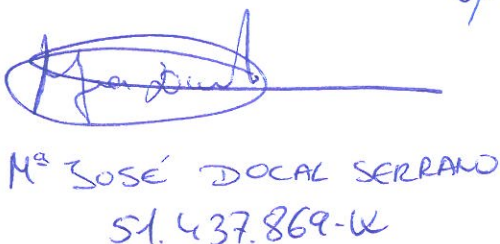 Mª JOSÉ DOCAL SERRANO
51.437.869-K